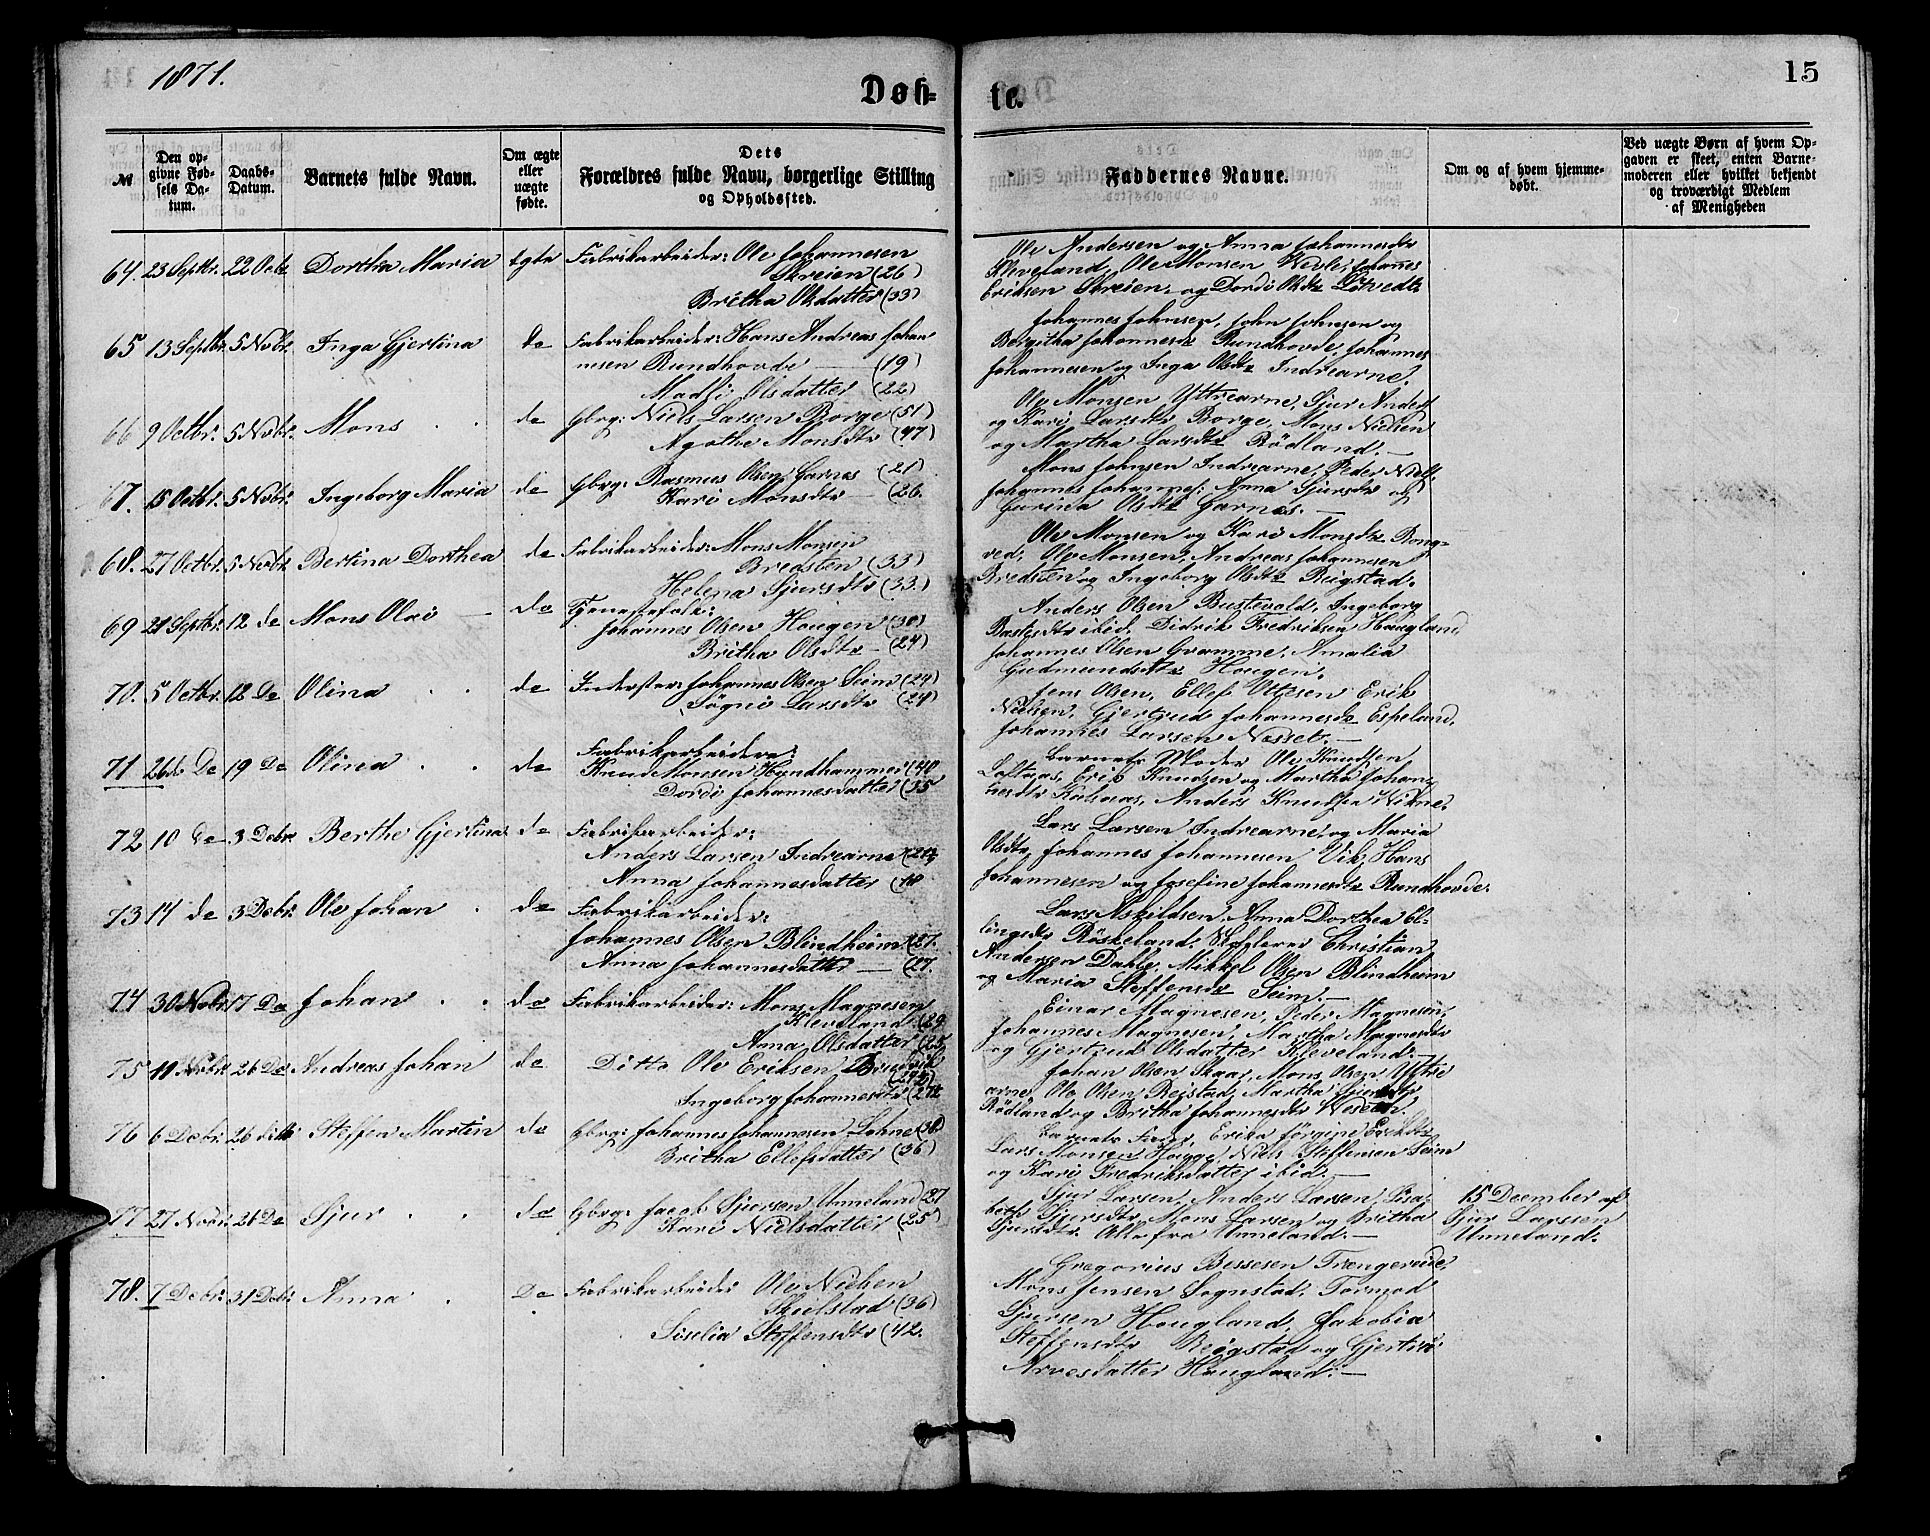 1871.
Døb-
te.
15
№
Den op-
givne Fød-
sels Da-
tum.
Daabs-
Datum.
Barnets fulde Navn.
Om ægte
eller
uægte
fødte.
Dets
Forældres fulde Navn, borgerlige Stilling
og Opholdssted.
Faddernes Navne.
Om og af hvem hjemme-
døbt.
Ved uægte Børn af hvem Op-
gaven er skeet, enten Barne-
moderen eller hvilket bekjendt
og troværdigt Medlem
af Menigheden
64. 23 Septbr. 22 Octbr Dortha Maria Egte Fabrikarbeider: Ole Johannesen
Skreien (26)
Britha Olsdatter (33)
Ole Andersen og Anna Johannesdtr
Kleveland, Ole Monsen Johannes
Eriksen Skreien, og Dordi Olsdtr
65 13 Septbr. 5 Novbr. Inga Gjertina do Fabrikarbeider: Hans Andreas Johan
nesen Rundhovde (19)
Madli Olsdatter (22)
Johannes Johnsen, John Johnsen og
Bergitha Johannesdtr Rundhovde, Johannes
Johannesen og Inga Olsdtr Indrearne.
66 9 Octbr. 5 Novbr. Mons do Gbrg: Niels Larsen Borge (51)
Agothe Monsdtr (47)
Ole Monsen Yttrearne, Sjur Anders
og Kari Larsdtr Borge, Mons Nielsen
og Martha Larsdtr Rødland.—
67. 15 Octbr. 5 Novbr. Ingeborg Maria do Gbrg: Rasmus Olsen Garnes (21)
Kari Monsdtr — (26.
Mons Johnsen Indrearne, Peder Niels,
Johannes Johannes: Anna Sjursdtr og
Gurina Olsdtr Garnes.—
68. 27 Octbr. 5 Novbr. Bertina Dorthea do Fabrikarbeider: Mons Monsen
Bredsten (33)
Helena Sjursdtr (33.)
Ole Monsen og Kari Monsdtr Rong-
ved, Ole Monsen, Andreas Johannesen
Bredsten og Ingeborg Olsdtr Reigstad.
69 21 Septbr. 12 do Mons Olai — do Tjenestefolk:
Johannes Olsen Hougen (30)
Britha Olsdtr — (24)
Anders Olsen Bustevold, Ingeborg
ibid. Didrik Fredriksen Haugland,
Johannes Olsen Gramme, Amalia
Gudmundsdtr Hougen.
70. 5 Octbr. 12 Do Olina do Inderster: Johannes Olsen Seim (24)
Søgni Larsdtr (24)
Jens Olsen, Ellef Ottesen Erik
Nielsen, Gjertrud Johannesdtr Espeland,
Johannes Larsen Nesset.—
71 26 Do 19 Do Olina do Fabrikarbeider:
Knud Monsen Hundhammer (40
Dordi Johannesdatter (35
Barnets Moder Ole Knudsen
Loftaas, Erik Knudsen og Martha Johan-
nesdtr Kalsaas, Anders Knudsen Vikne.
72 10 do 3 Debr. Berthe Gjertina do Fabrikarbeider:
Anders Larsen Indrearne (24
Anna Johannesdatter (18
Lars Larsen Indrearne og Maria
Olsdtr, Johannes Johannesen Vik, Hans
Johannesen og Josefine Johannesdtr Rundhovde.
73 14 do 3 Debr. Ole Johan do Fabrikarbeider:
Johannes Olsen Blindheim (27.
Anna Johannesdatter — (27.
Lars Askildsen, Anna Dorthea El-
lingsdtr Røskeland, Christian
Andersen Dahle, Mikkel Olsen Blindheim
og Maria Steffensdtr Seim.—
74 30 Novbr. 17 Do Johan do Fabrikarbeider: Mons Magnesen
Kleveland (29
Anna Olsdatter (25
Einar Magnesen, Peder Magnesen,
Johannes Magnesen, Martha Magnesdtr
og Gjertrud Olsdatter Kleveland.—
75 19 Novbr. 26 Do Andreas Johan do Ditto Ole Eriksen Bruvik
Ingeborg Johannesdtr
Johan Olsen Skaar, Mons Olsen Yttre
arne, Ole Olsen Reistad, Martha Sjursdtr
Rødland og Britha Johannesdtr
76 6 Debr. 26 ditto Steffen Martin do Gbrg: Johannes Johannesen Lohne (36.
Britha Ellefsdatter (36)
Barnets Fader, Erika Jørgine
Lars Monsen Hauge, Niels Steffensen Seim
og Kari Fredriksdatter ibid.—
77 27 Novbr. 26 Do Sjur do Gbrg: Jacob Sjursen Unneland (27
Kari Nielsdatter (25)
Sjur Larsen, Anders Larsen, Lisa-
beth Sjursdtr, Mons Larsen og Britha
Sjursdtr. Alle fra Unneland.—
15 Deember af
Sjur Larssen
Unneland.
78. 7 Debr. 31 Debr. Anna Do Fabrikarbeider Ole Nielsen
Skielstad (36)
Siselia Steffensdtr (42.
Gregorius Bessesen Trængereide,
Mons Jensen Sognstad, Tormod
Sjursen Hougland, Jakobia
Steffensdtr Reigstad og Gjertrud
Arvesdatter Haugland.—